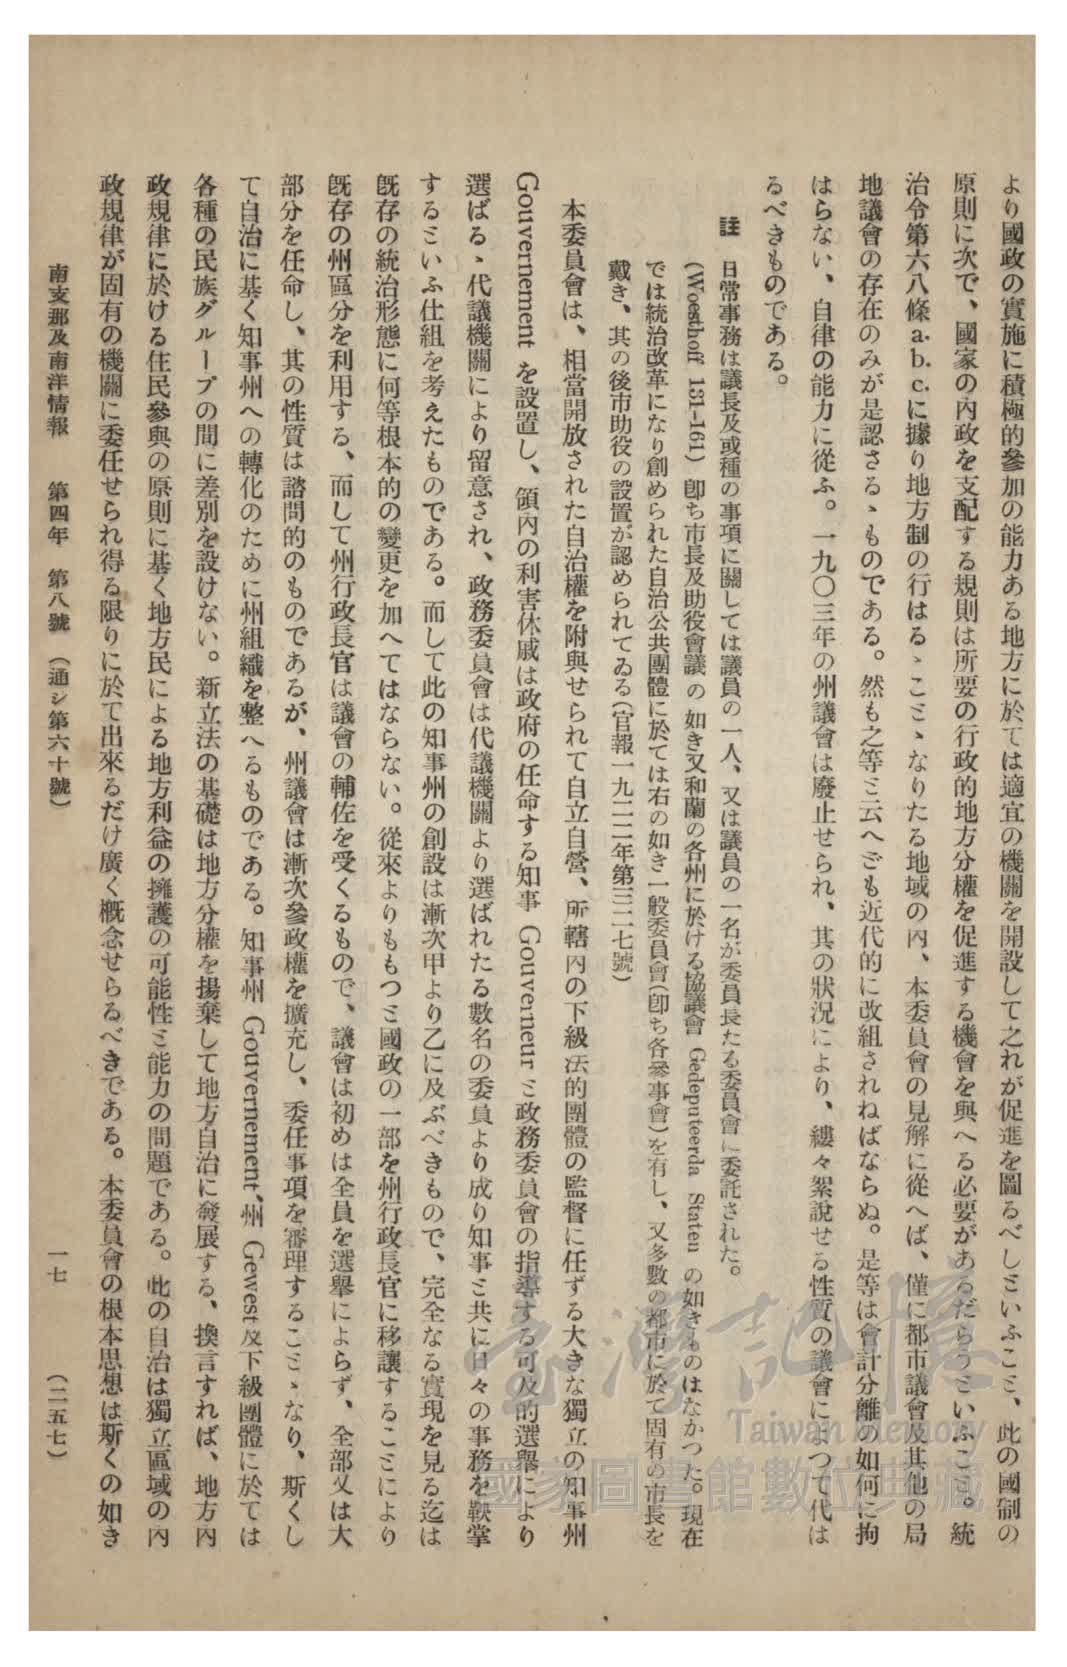 より國政の實施に積極的參加の能力ある地方に於ては適宜の機關を開設して之れが促進を圖るべしといふこと、此の國制の
原則に次で、國家の內政を支配する規則は所要の行政的地方分權を促進する機會を與へる必要があるだらうといふこと。統
治令第六八條a.b.c.に據り地方制の行はるゝことゝなりたる地域の內、本委員會の見解に從へば、僅に都市議會及其他の局
地議會の存在のみが是認さるゝものである。然も之等と云へども近代的に改組されねばならぬ。是等は會計分離の如何に拘
はらない、自律の能力に從ふ。一九〇三年の州議會は廢止せられ、其の狀況により、縷々絮說せる性質の議會によつて代は
るべきものである。
註 日常事務は議長及或種の事項に關しては議員の一人、又は議員の一名が委員長たる委員會に委託された。
(Woesthoff 131-161) 卽ち市長及助役會議の如き又和蘭の各州に於ける協議會 Gedeputeerda Staten の如きものはなかつた。現在
では統治改革になり創められた自治公共團體に於ては右の如き一般委員會(卽ち各參事會)を有し、又多數の都市に於て固有の市長を
戴き、其の後市助役の設置が認められてゐる(官報一九二二年第三二七號)
本委員會は、相當開放された自治權を附與せられて自立自營、所轄內の下級法的團體の監督に任ずる大きな獨立の知事州
Gouvernement を設置し、領內の利害休戚は政府の任命する知事 Gouverneur と政務委員會の指導する可及的選擧により
選ばるゝ代議機關により留意され、政務委員會は代議機關より選ばれたる數名の委員より成り知事と共に日々の事務を鞅掌
するといふ仕組を考えたものである。而して此の知事州の創設は漸次甲より乙に及ぶべきもので、完全なる實現を見る迄は
旣存の統治形態に何等根本的の變更を加へてはならない。從來よりももつと國政の一部を州行政長官に移讓することにより
旣存の州區分を利用する、而して州行政長官は議會の輔佐を受くるもので、議會は初めは全員を選擧によらず、全部又は大
部分を任命し、其の性質は諮問的のものであるが、州議會は漸次參政權を擴充し、委任事項を審理することゝなり、斯くし
て自治に基く知事州への轉化のために州組織を整へるものである。知事州 Gouvernement、州 Gewest及下級團體に於ては
各種の民族グループの間に差別を設けない。新立法の基礎は地方分權を揚棄して地方自治に發展する、換言すれば、地方內
政規律に於ける住民參與の原則に基く地方民による地方利益の擁護の可能性と能力の問題である。此の自治は獨立區域の內
政規律が固有の機關に委任せられ得る限りに於て出來るだけ廣く槪念せらるべきである。本委員會の根本思想は斯くの如き
南支那及南洋情報 第四年 第八號 (通シ第六十號) 一七 (二五七)
臺灣記憶
Taiwan Memory
國家圖書館數位典藏